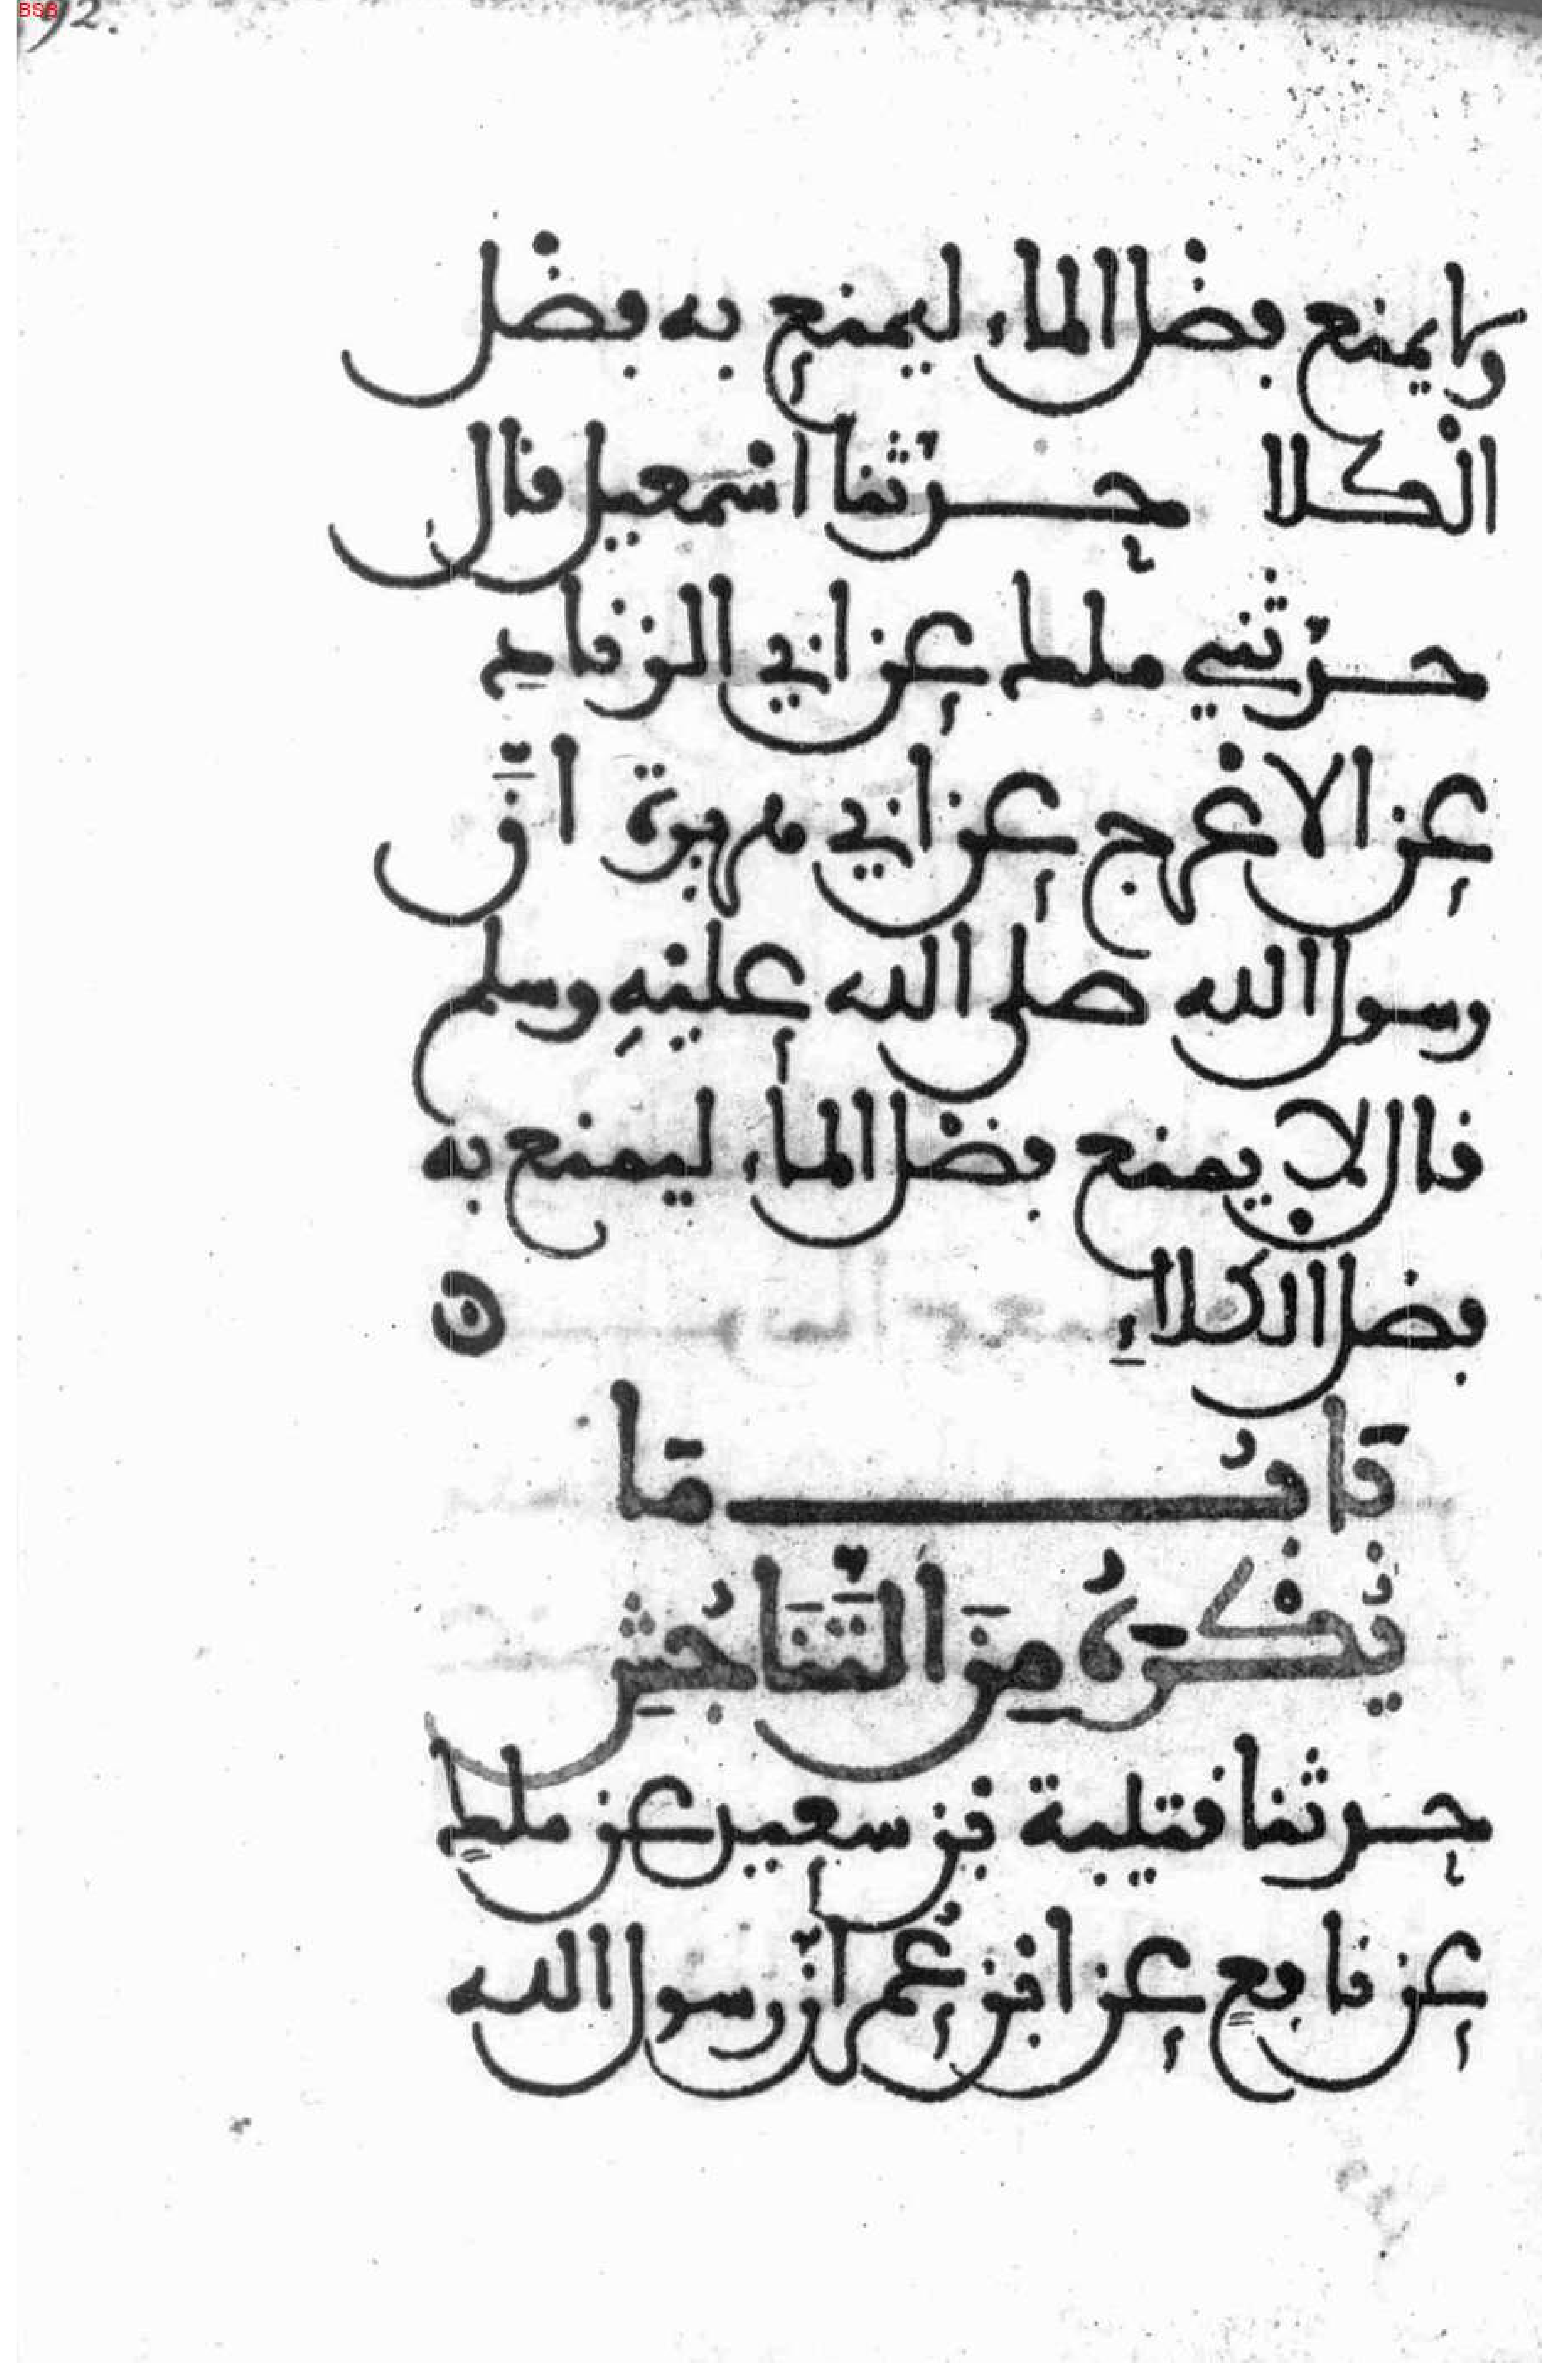 ولا يمنع فضل الماء ليمنع به فضل
الكلا حدثنا اسمعيل قال
حدثني ملك عن ابي الزناد
عن الاعرج عن ابي هريرة انّ
رسول الله صلى الله عليه وسلم
قال لا يمنع فضل الماء ليمنع به
فضل الكلاءِ
بَابُ مَا
يُكْرَهُ مِنَ التَّنَاجُشِ
حدثنا قتيبة بن سعيد عن ملك
عن نافع عن ابن عُمر انّ رسول الله